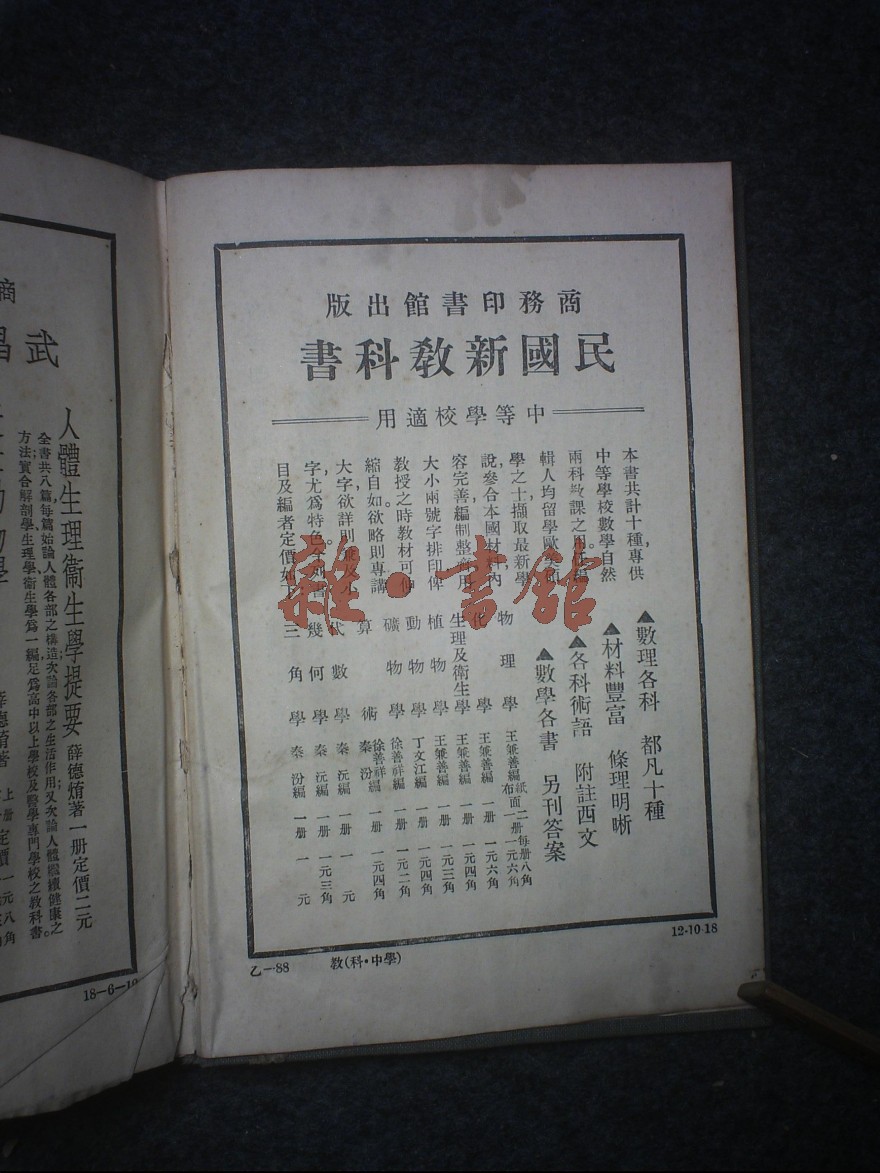 商務印書館出版
民國新教科書
中等學校適用
本書共計十種，專供
中等學校數學自然
兩科敎課之用其編
輯人均留學歐美
學之士擷取最新學
說，參合本國材料，內
容完善編制整齊用
大小兩號字排印俾
教授之時教材可伸
縮自如。欲略則專講
大字，欲詳則
字，尤爲特色
目及編者定價如
▲數理各科　都凡十種
▲材料豐富　條理明晰
▲各科術語　附註西文
▲數學各書　另刊答案
物理學　王兼善編　紙面二册每册八角　布面一册一元六角
化學　王兼善編　一册　一元六角
生理及衛生學　王兼善編　一册　一元四角
植物學　王兼善編　一册　一元三角
動物學　丁文江編　一册　一元四角
礦物學　徐善祥編　一册　一元二角
算術　徐善祥　秦汾編　一册　一元四角
代數學　秦沅編　一册　一元
幾何學　秦沅編　一册　一元三角
三角學　秦汾編　一册　一元
乙—88　敎(科·中學)
12-10-18
雜·書館
商
武昌
人體生理衛生學提要　薛德焴著　一册定價二元
全書共八篇，每篇始論人體各部之構造，次論各部之生活作用，又次論人體繼續健康之
方法；實合解剖學、生理學、衛生學爲一編，足爲高中以上學校及醫學專門學校之教科書。
動物學　薛德焴著　上册定價一元八角
18—6—1